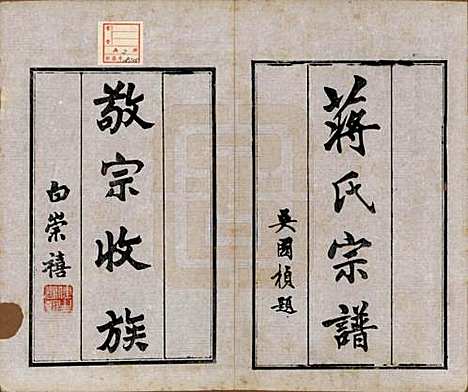 蔣氏宗譜
吳國楨題
敬宗收族
白崇禧